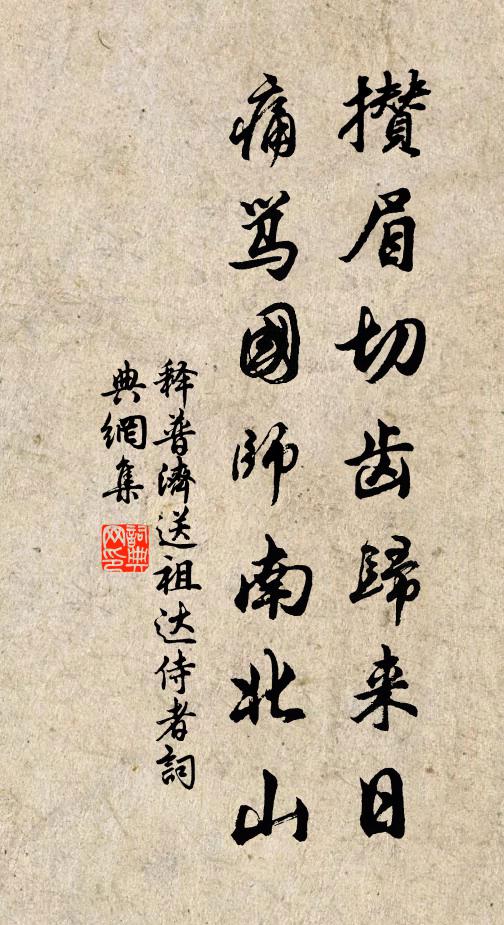 攢眉切齿歸来日
痛骂國師南北山
释普濟送祖达侍者詞
典網集
詞典
网印